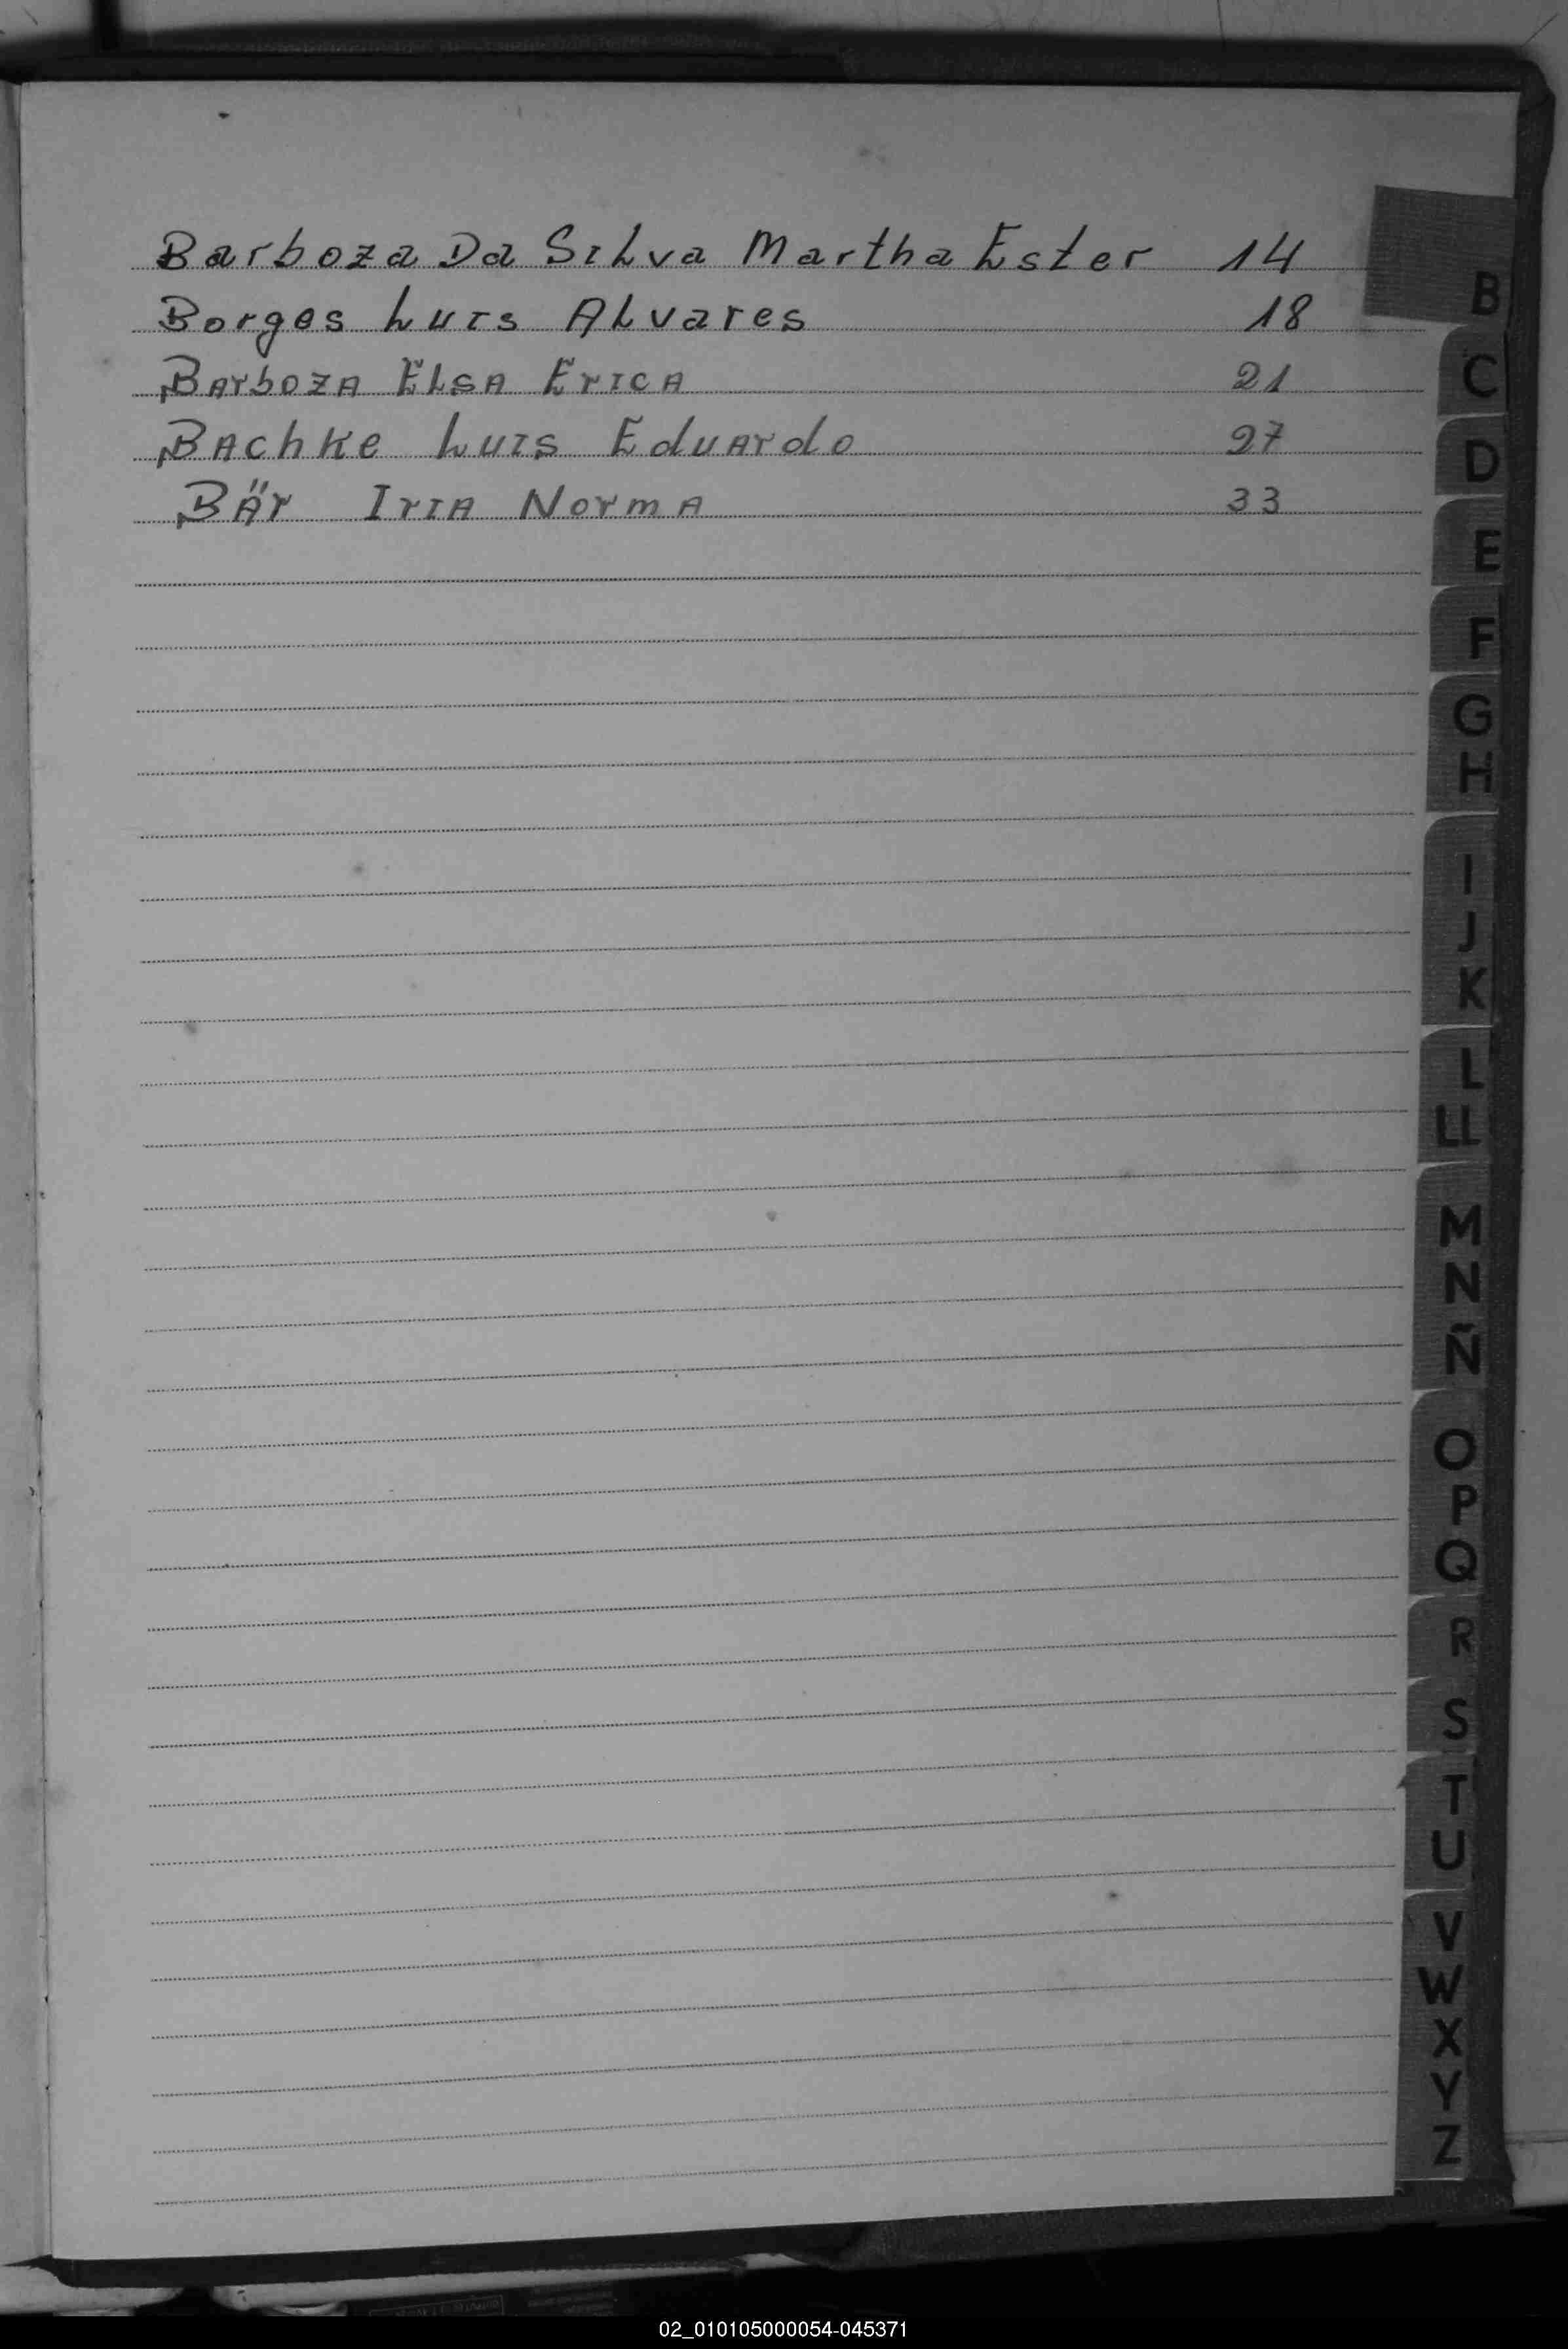 Barboza Da Silva Martha Ester 14
Borges Luis Alvares 18
Barboza Elsa Erica 21
Bachke Luis Eduardo 27
Bär Iria Norma 33
B
C
D
E
F
G
H
I
J
K
L
LL
M
N
Ñ
O
P
Q
R
S
T
U
V
W
X
Y
Z
02_010105000054-045371